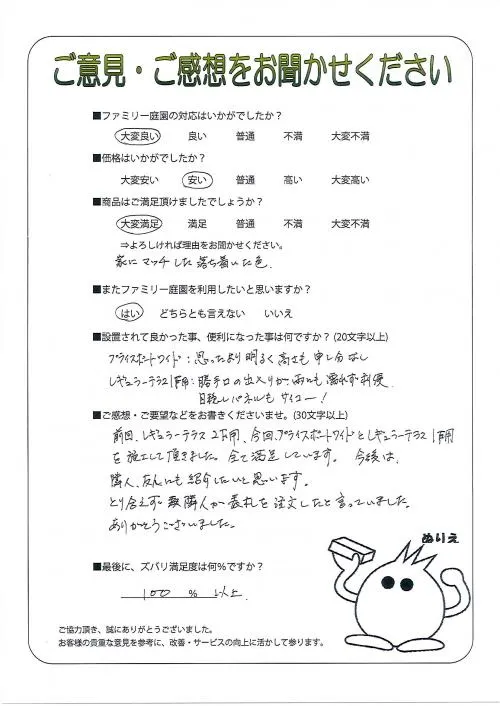 ご意見・ご感想をお聞かせください
■ファミリー庭園の対応はいかがでしたか？
大変良い　良い　普通　不満　大変不満
■価格はいかがでしたか？
大変安い　安い　普通　高い　大変高い
■商品はご満足頂けましたでしょうか？
大変満足　満足　普通　不満　大変不満
⇒よろしければ理由をお聞かせください。
家にマッチした落ち着いた色.
■またファミリー庭園を利用したいと思いますか？
はい　どちらとも言えない　いいえ
■設置されて良かった事、便利になった事は何ですか？(20文字以上)
プライスポートワイド：思ったより明るく高さも申し分なし
レギュラーテラス1F用：勝手口の出入りが雨にも濡れず利便.
目隠しパネルもサイコー！
■ご感想・ご要望などをお書きくださいませ。(30文字以上)
前回、レギュラーテラス2F用、今回プライスポートワイドとレギュラーテラス1F用
を施工して頂きました。全て満足しています。今後は、
隣人、友人にも紹介したいと思います。
とり合えず 隣人が表札を注文したと言っていました。
ありがとうございました。
ぬりえ
■最後に、ズバリ満足度は何％ですか？
100 % 以上.
ご協力頂き、誠にありがとうございました。
お客様の貴重な意見を参考に、改善・サービスの向上に活かして参ります。